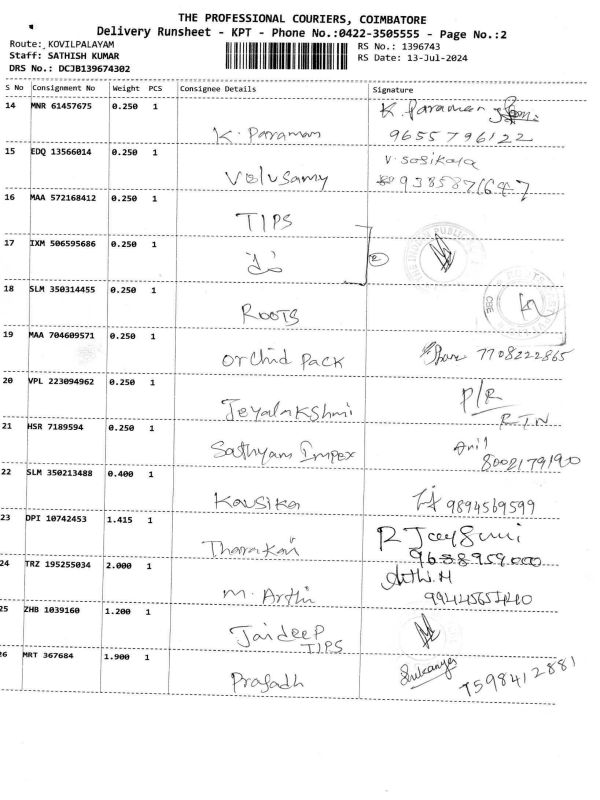 THE PROFESSIONAL COURIERS, COIMBATORE
Delivery Runsheet - KPT - Phone No.:0422-3505555 - Page No.:2
Route: KOVILPALAYAM RS No.: 1396743
Staff: SATHISH KUMAR RS Date: 13-Jul-2024
DRS No.: DCJB139674302
S No Consignment No Weight PCS Consignee Details Signature
14 MNR 61457675 0.250 1 K. Paraman K. Paraman 9655796122
15 EDQ 13566014 0.250 1 Velusamy V. Sasikala
16 MAA 572168412 0.250 1 TIPS
17 IXM 506595686 0.250 1 2
18 SLM 350314455 0.250 1 ROOTS CBE
19 MAA 704609571 0.250 1 Orchid Pack 7708222865
20 VPL 223094962 0.250 1 Jeyalakshmi P/R R.T.N
21 HSR 7189594 0.250 1 Sathyam Impex Anil 8002179190
22 SLM 350213488 0.400 1 Kausika 9894569599
23 DPI 10742453 1.415 1 Tharakan
24 TRZ 195255034 2.000 1 M. Arthi Arthi.M
25 ZHB 1039160 1.200 1 Jaideep TIPS
26 MRT 367684 1.900 1 Prasadh Sukanya 7598412881